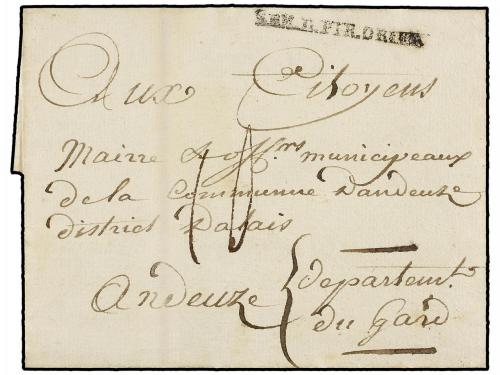 5.EM.D.PIR.ORIEN
Aux Citoyens
Mairre & off.rs municipeaux
de la Communne Dandeuze
district Dalais
Andeuze { departemt.
du Gard